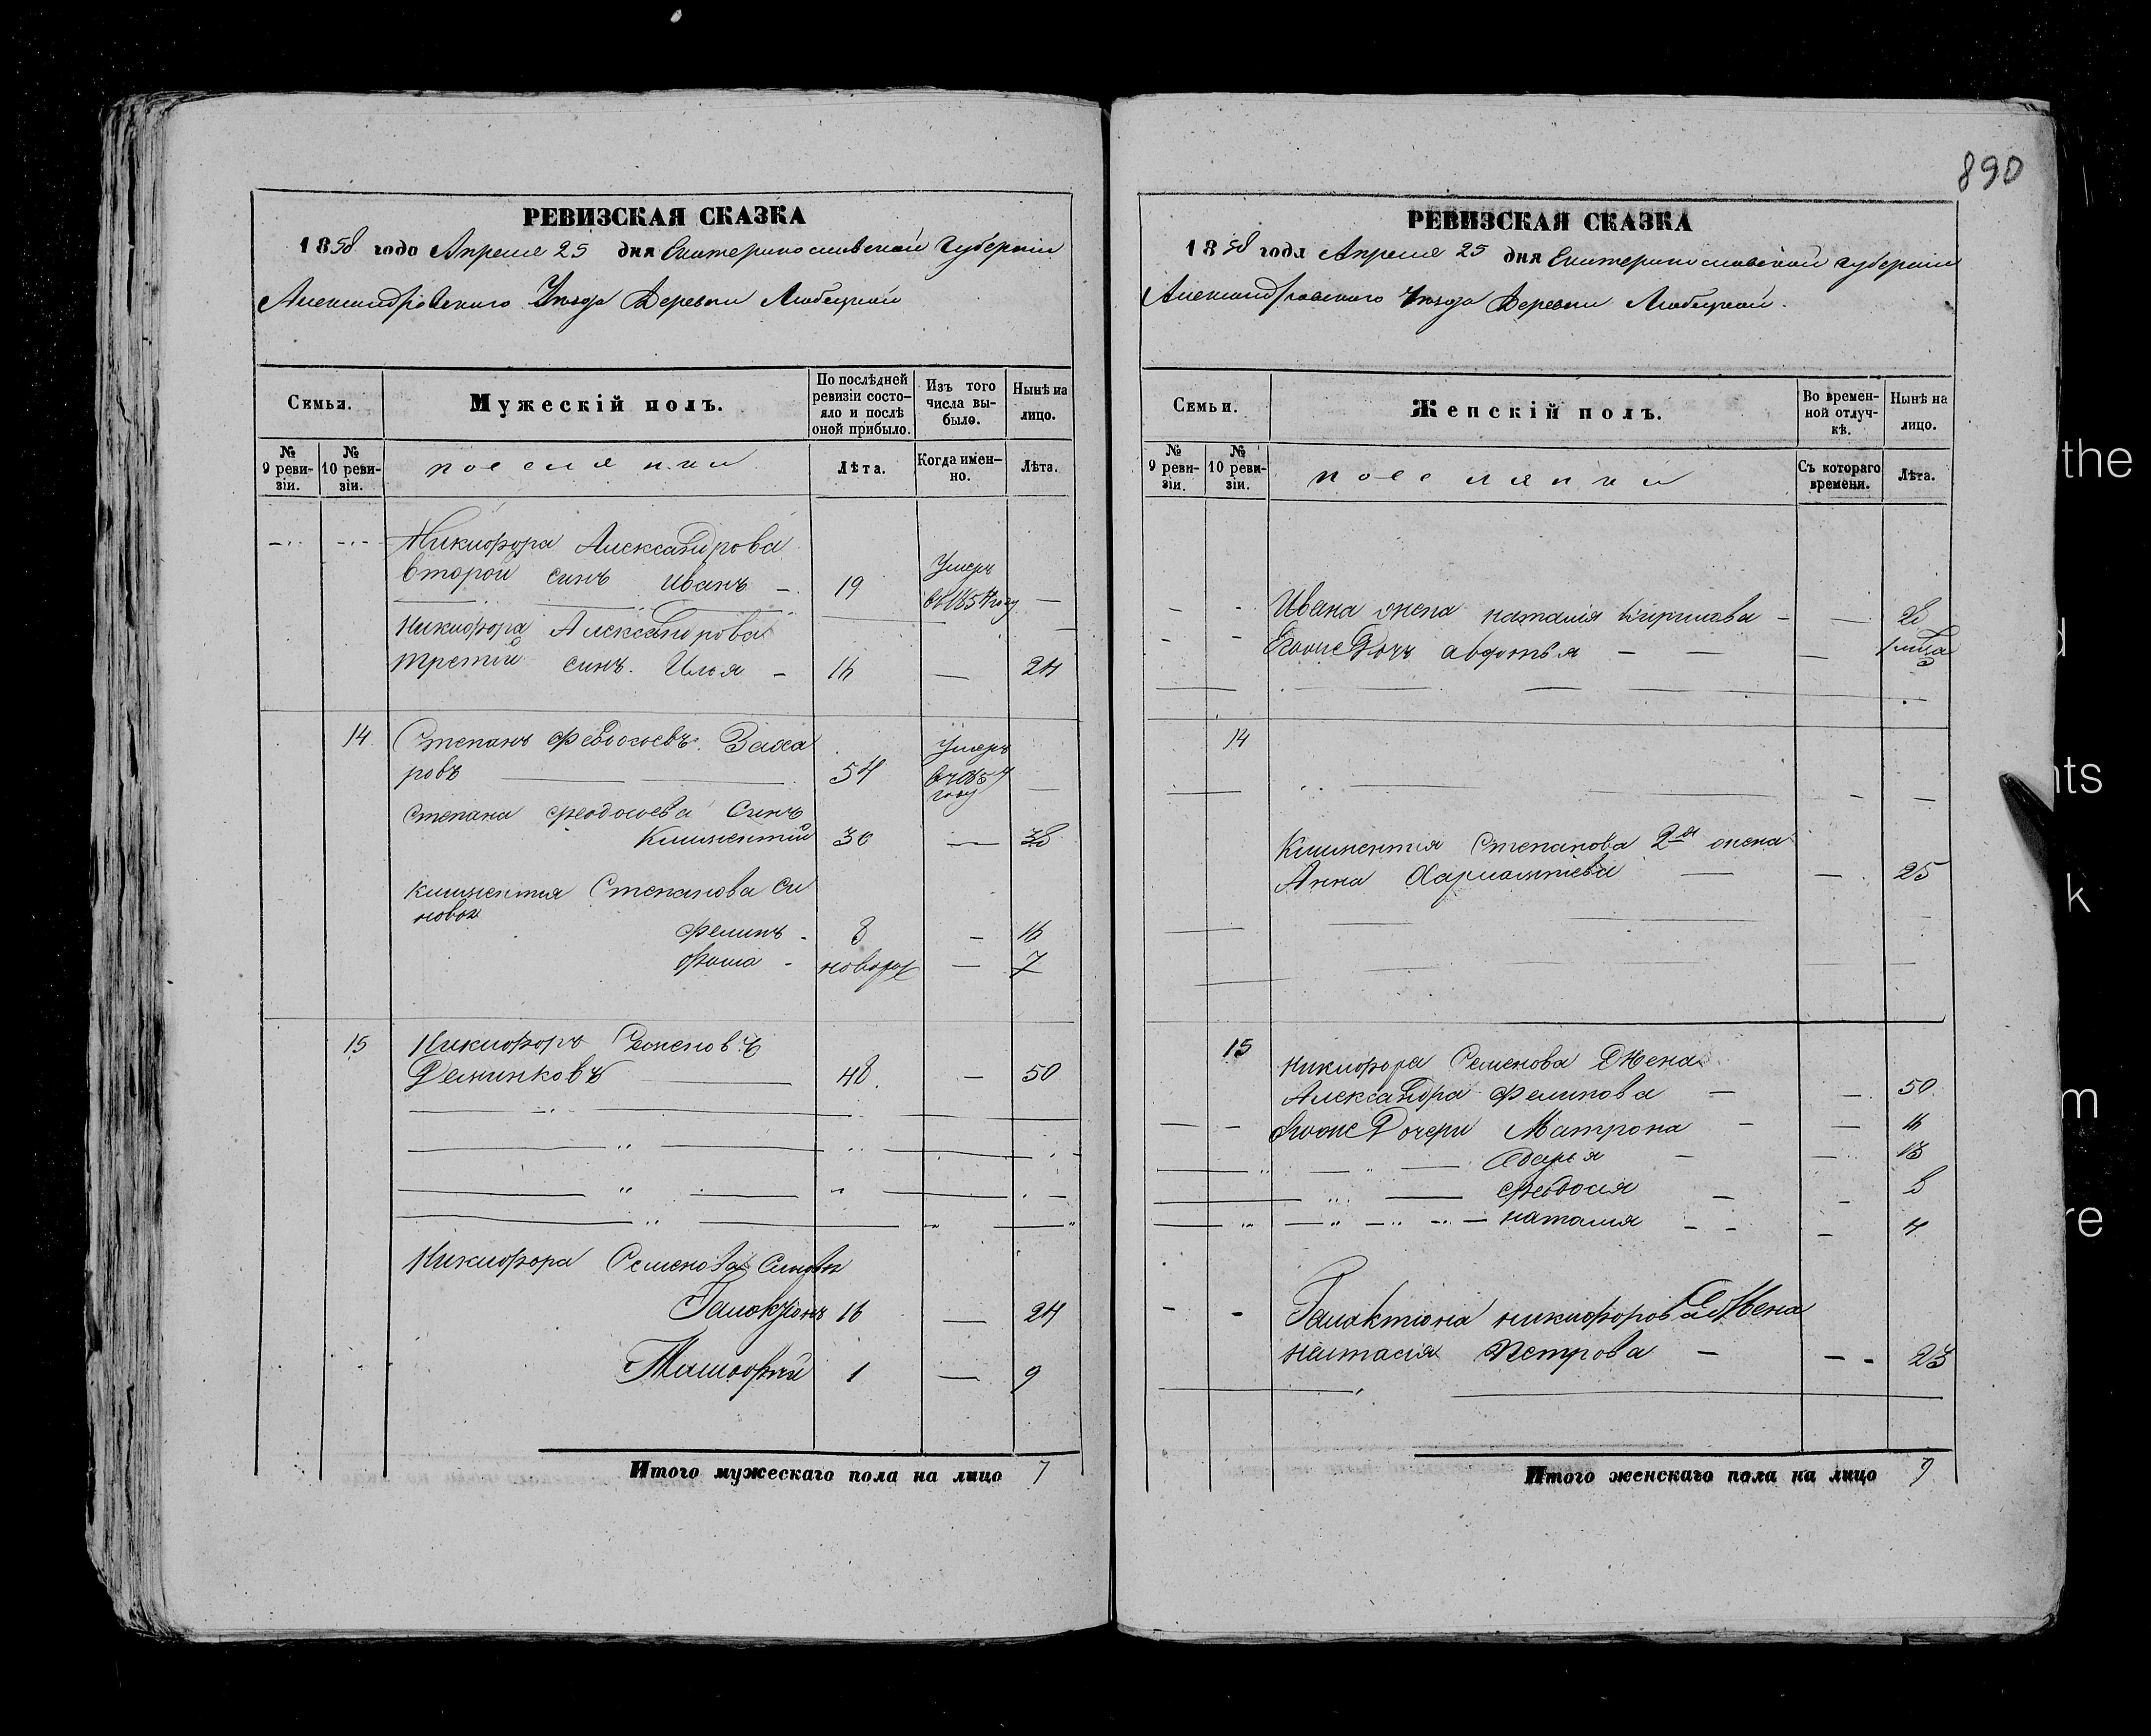 890
РЕВИЗСКАЯ СКАЗКА
1858 года Апреля 25 дня Екатеринославской Губернiи
Александровского Уезда Деревни Любицкой
Семьи.
Мужескiй полъ.
По послѣдней ревизiи состояло и послѣ оной прибыло.
Изъ того числа выбыло.
Нынѣ на лицо.
№ 9 ревизiи.
№ 10 ревизiи.
поселяни
Лѣта.
Когда именно.
Лѣта.
Никифора Александрова
второй синъ Иванъ - 19 Умеръ в 1854 году —
Никифора Александрова
третий синъ Илья - 16 — 24
14 Степанъ Федосоевъ Заха
ровъ 54 Умеръ в 1854 году —
Степана Феодосоева Синъ
Климентий 30 — 38
Климентия Степанова си
новья
Филипъ - 8 — 16
Фома - новорож — 7
15 Никифоръ Семеновъ
Деминковъ 48 — 50
Никифора Семенова Синовья
Галактионъ 16 — 24
Тимофий 1 — 9
Итого мужескаго пола на лицо 7
РЕВИЗСКАЯ СКАЗКА
1858 года Апреля 25 дня Екатеринославской Губернiи
Александровского Уезда Деревни Любицкой.
Семьи.
Женскiй полъ.
Во временной отлучкѣ.
Нынѣ на лицо.
№ 9 ревизiи.
№ 10 ревизiи.
поселянки
Съ котораго времени.
Лѣта.
Ивана жена наталия Кирилова - — 28
Егоже Дочъ авдотья — —
14
Климентия Степанова 2я жена
Анна Харлампиева — — 25
15 Никифора Семенова Жена
Александра Филипова — — 50
Егоже Дочери Матрона - — 16
Дарья - — 13
Феодосия — - 8
наталия - - — 4
Галактиона никифорова Жена
Наталия Петрова — - - 23
Итого женскаго пола на лицо 9
the
k
m
re